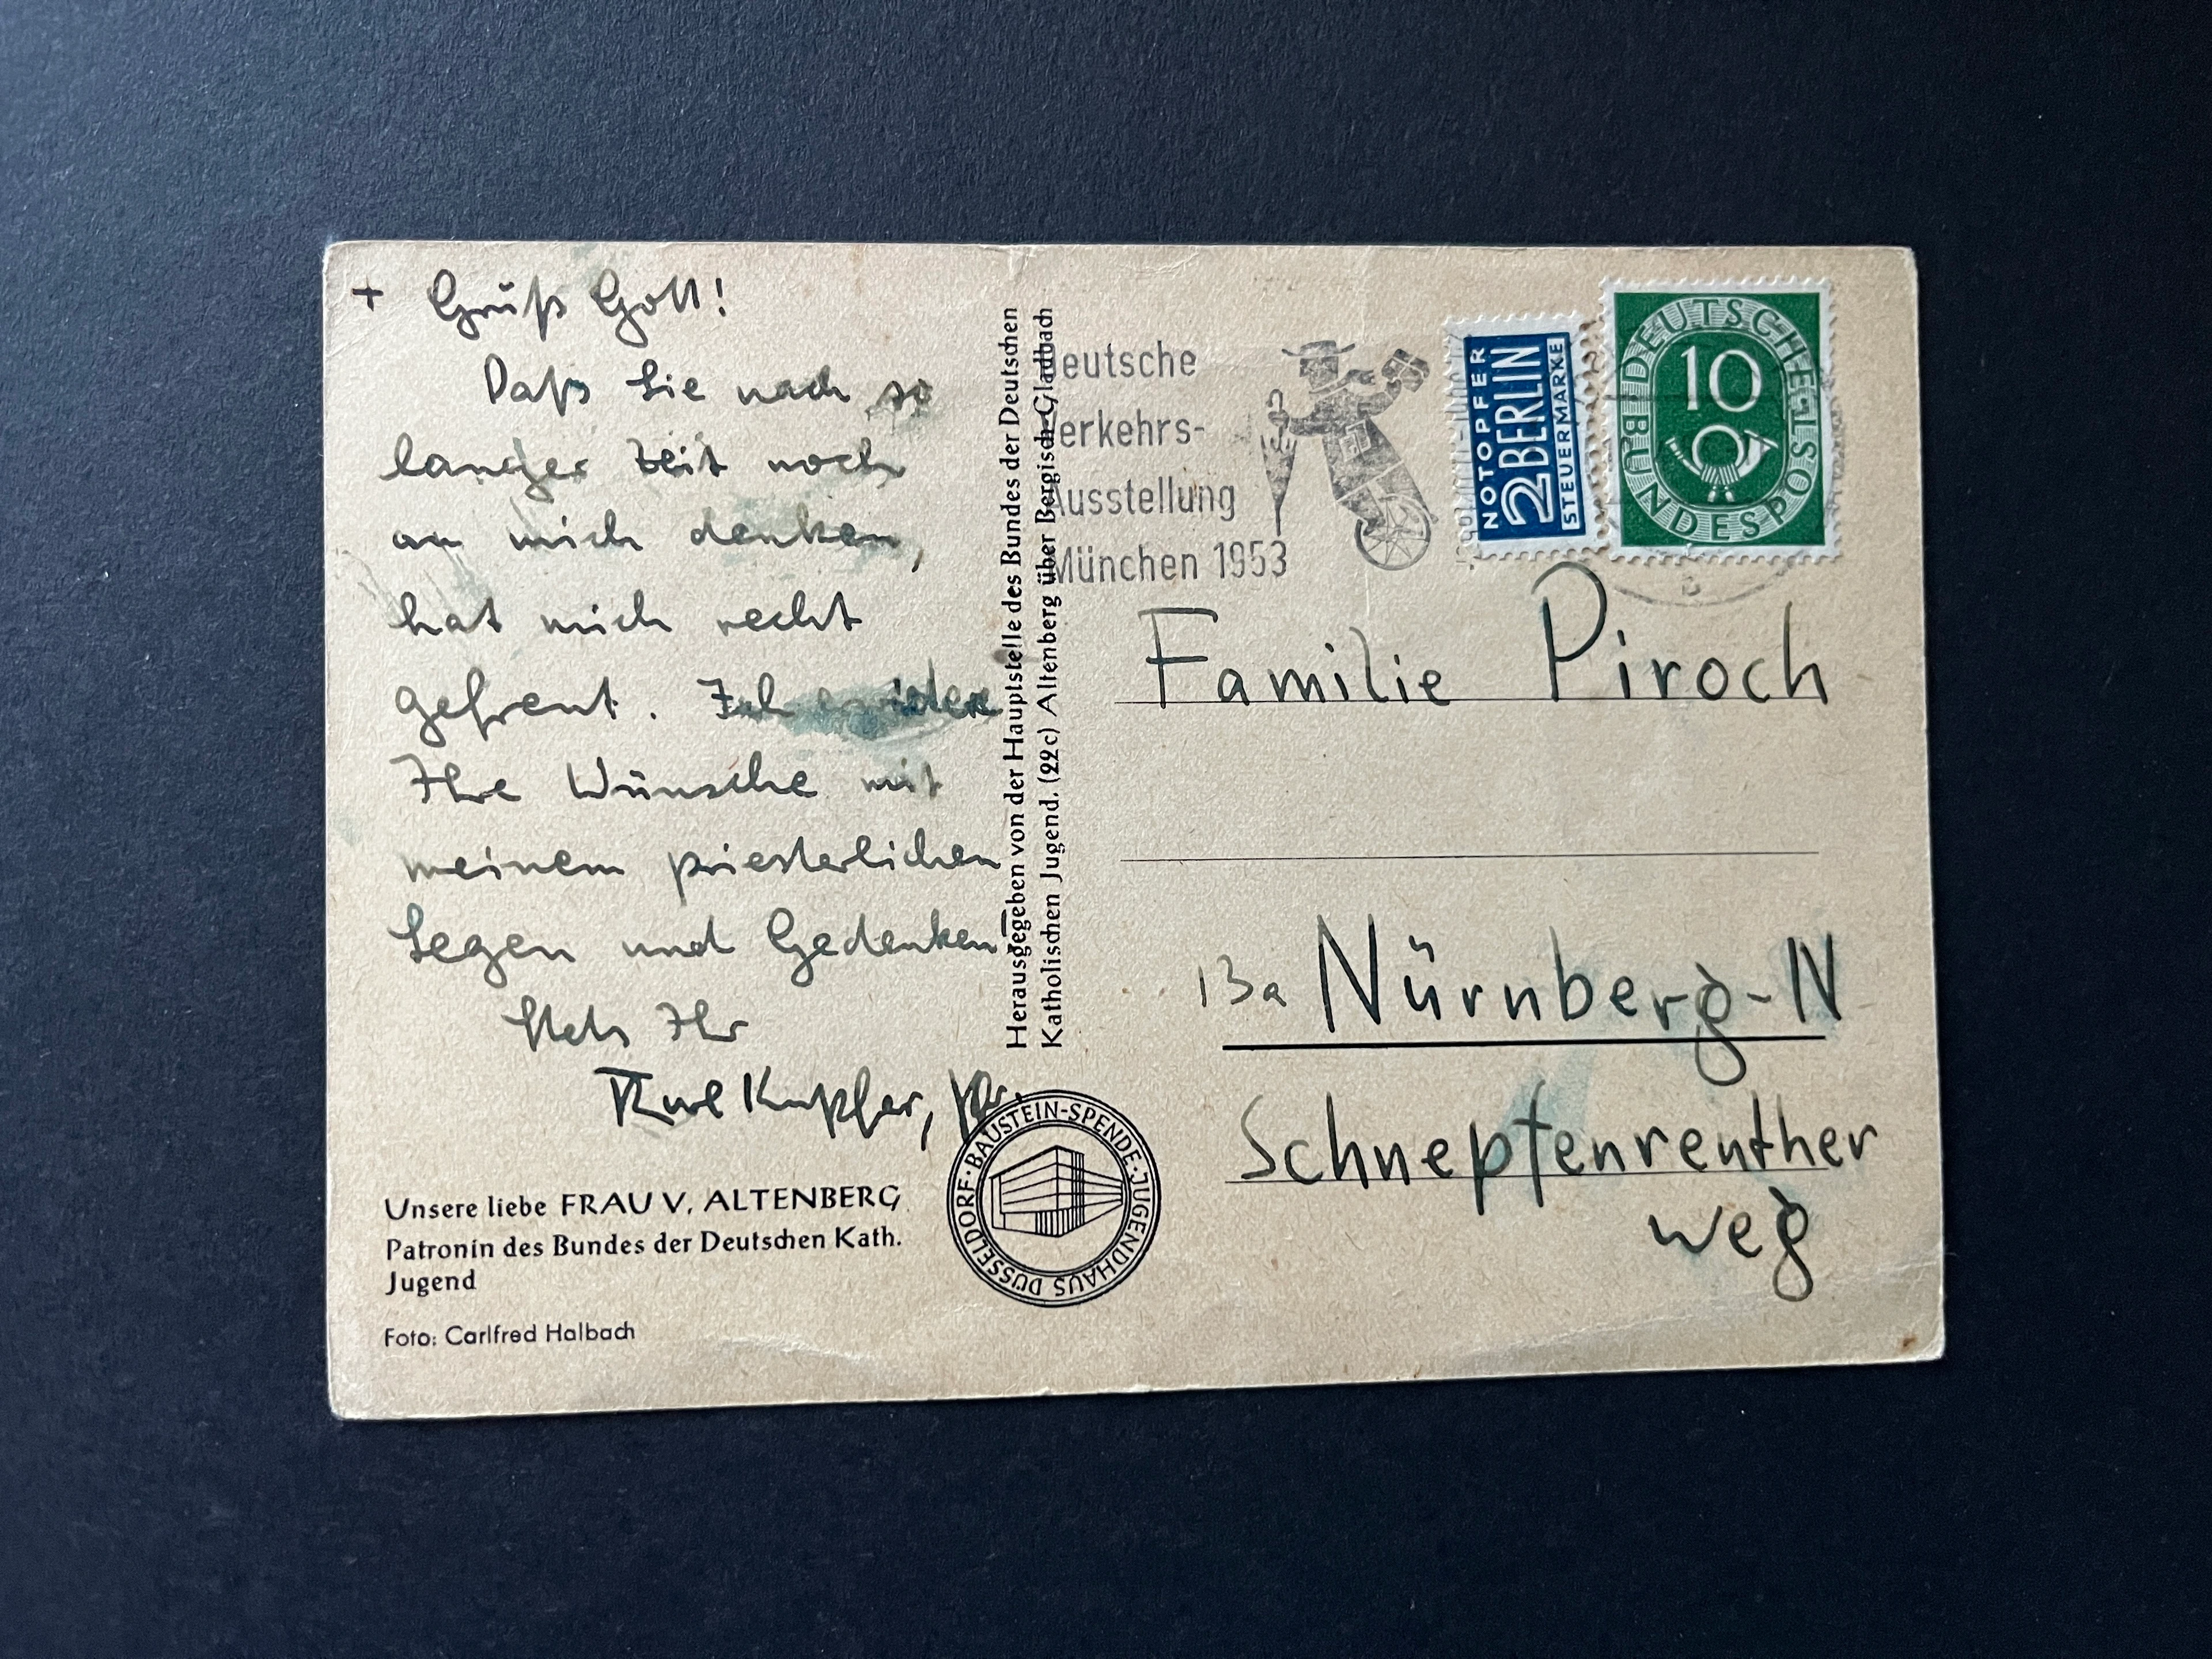 + Grüß Gott!
Daß Sie nach so
langer Zeit noch
an mich denken,
hat mich recht
gefreut. Ich erwidere
Ihre Wünsche mit
meinem priesterlichen
Segen und Gedenken!
Stets Ihr
Kupfer,
Unsere liebe FRAU V. ALTENBERG
Patronin des Bundes der Deutschen Kath.
Jugend
Foto: Carlfred Halbach
Herausgegeben von der Hauptstelle des Bundes der Deutschen
Katholischen Jugend. (22c) Altenberg über Bergisch-Gladbach
BAUSTEIN-SPENDE · JUGENDHAUS DÜSSELDORF ·
Deutsche
Verkehrs-
Ausstellung
München 1953
NOTOPFER
2 BERLIN
STEUERMARKE
DEUTSCHE BUNDESPOST
10
Familie Piroch
13a Nürnberg-N
Schneptenreuther
weg